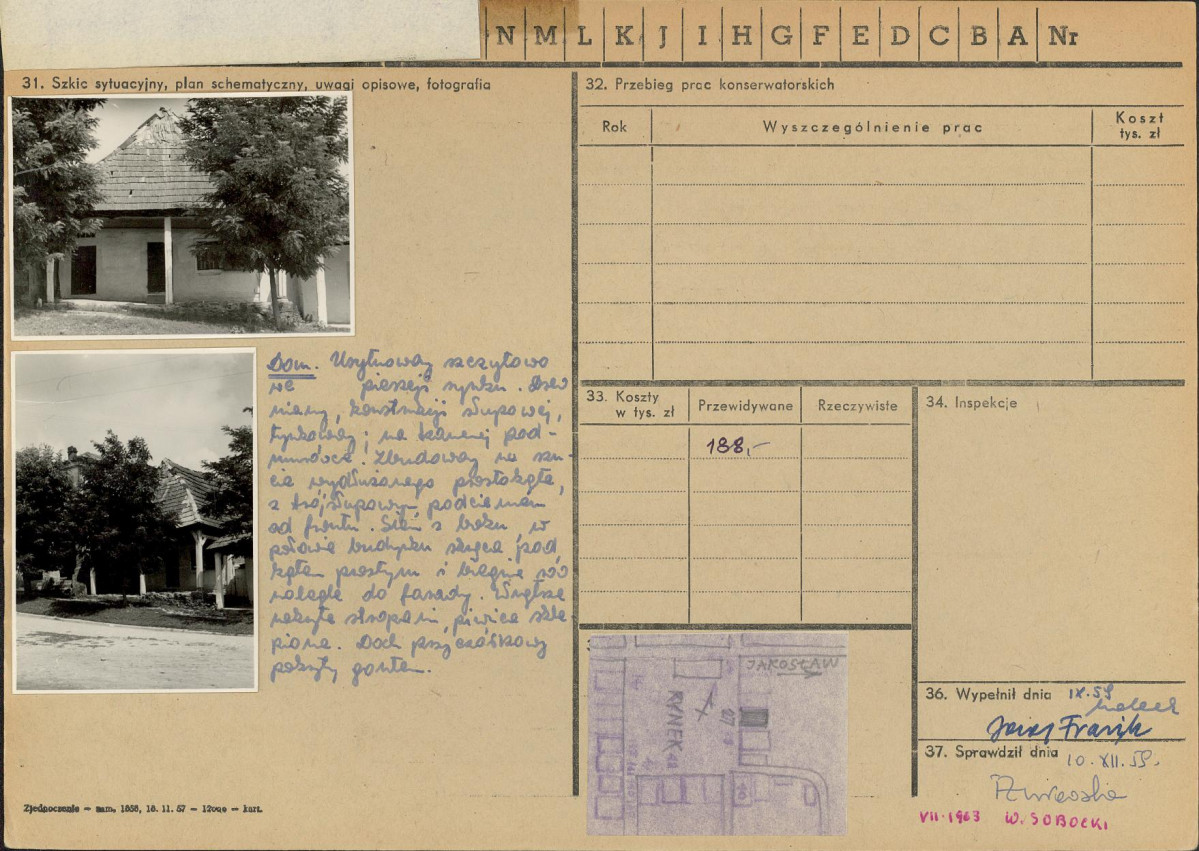 N M L K J I H G F E D C B A Nr
31. Szkic sytuacyjny, plan schematyczny, uwagi opisowe, fotografia
Dom. Usytuowany szczytowo
we pierzeji rynku. Drew
niany, konstrukcji słupowej,
tynkowany; na kamiennej pod-
murówce. Zbudowany na rzu-
cie wydłużonego prostokąta,
z trójsłupowym podcieniem
od frontu. Sień z boku, w
połowie budynku skręca pod
kątem prostym i biegnie rów
nolegle do fasady. Wnętrze
nakryte stropami, piwnica skle
piona. Dach przyczółkowy
pokryty gontem.
Zjednoczenie – zam. 1858, 18. 11. 57 – 12000 – kart.
32. Przebieg prac konserwatorskich
Rok Wyszczególnienie prac Koszt
tys. zł
33. Koszty
w tys. zł Przewidywane Rzeczywiste
188,-
34. Inspekcje
JAROSŁAW
RYNEK
36. Wypełnił dnia IX.59
Józef Frazik
37. Sprawdził dnia 10. XII. 59.
VII-1963 W. SOBOCKI